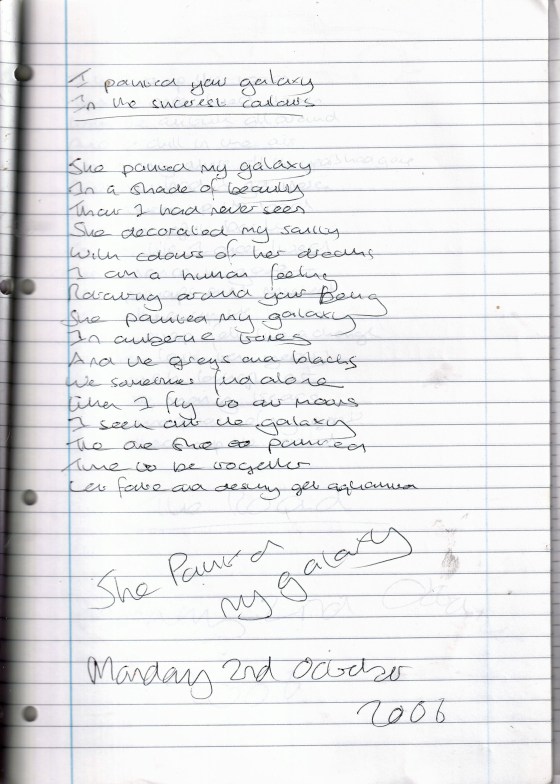 I painted your galaxy
In the sincerest colours
She painted my galaxy
In a shade of beauty
That I had never seen
She decorated my sanity
With colours of her dreams
I am a human feeling
Rotating around your Being
She painted my galaxy
In autumne tones
And the greys and blacks
We sometimes find alone
When I fly to our moons
I seen out the galaxy
The one she painted
Time to be together
Let fate and destiny get aquainted
She Painted
my galaxy
Monday 2nd October
2006